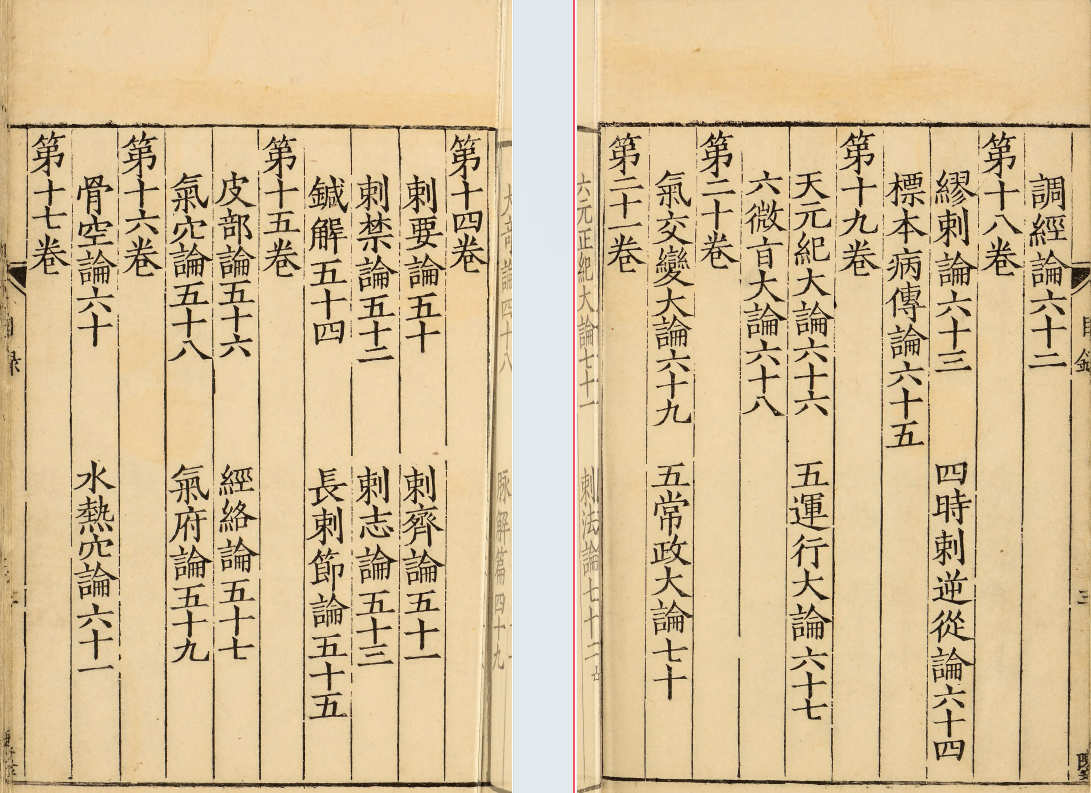 論四十八 脉解篇四十九
第十四卷
刺要論五十 刺齊論五十一
刺禁論五十二 刺志論五十三
鍼解五十四 長刺節論五十五
第十五卷
皮部論五十六 經絡論五十七
氣穴論五十八 氣府論五十九
第十六卷
骨空論六十 水熱穴論六十一
第十七卷
目錄 三
調經論六十二
第十八卷
繆刺論六十三 四時刺逆從論六十四
標本病傳論六十五
第十九卷
天元紀大論六十六 五運行大論六十七
六微旨大論六十八
第二十卷
氣交變大論六十九 五常政大論七十
第二十一卷
六元正紀大論七十一 刺法論七十二